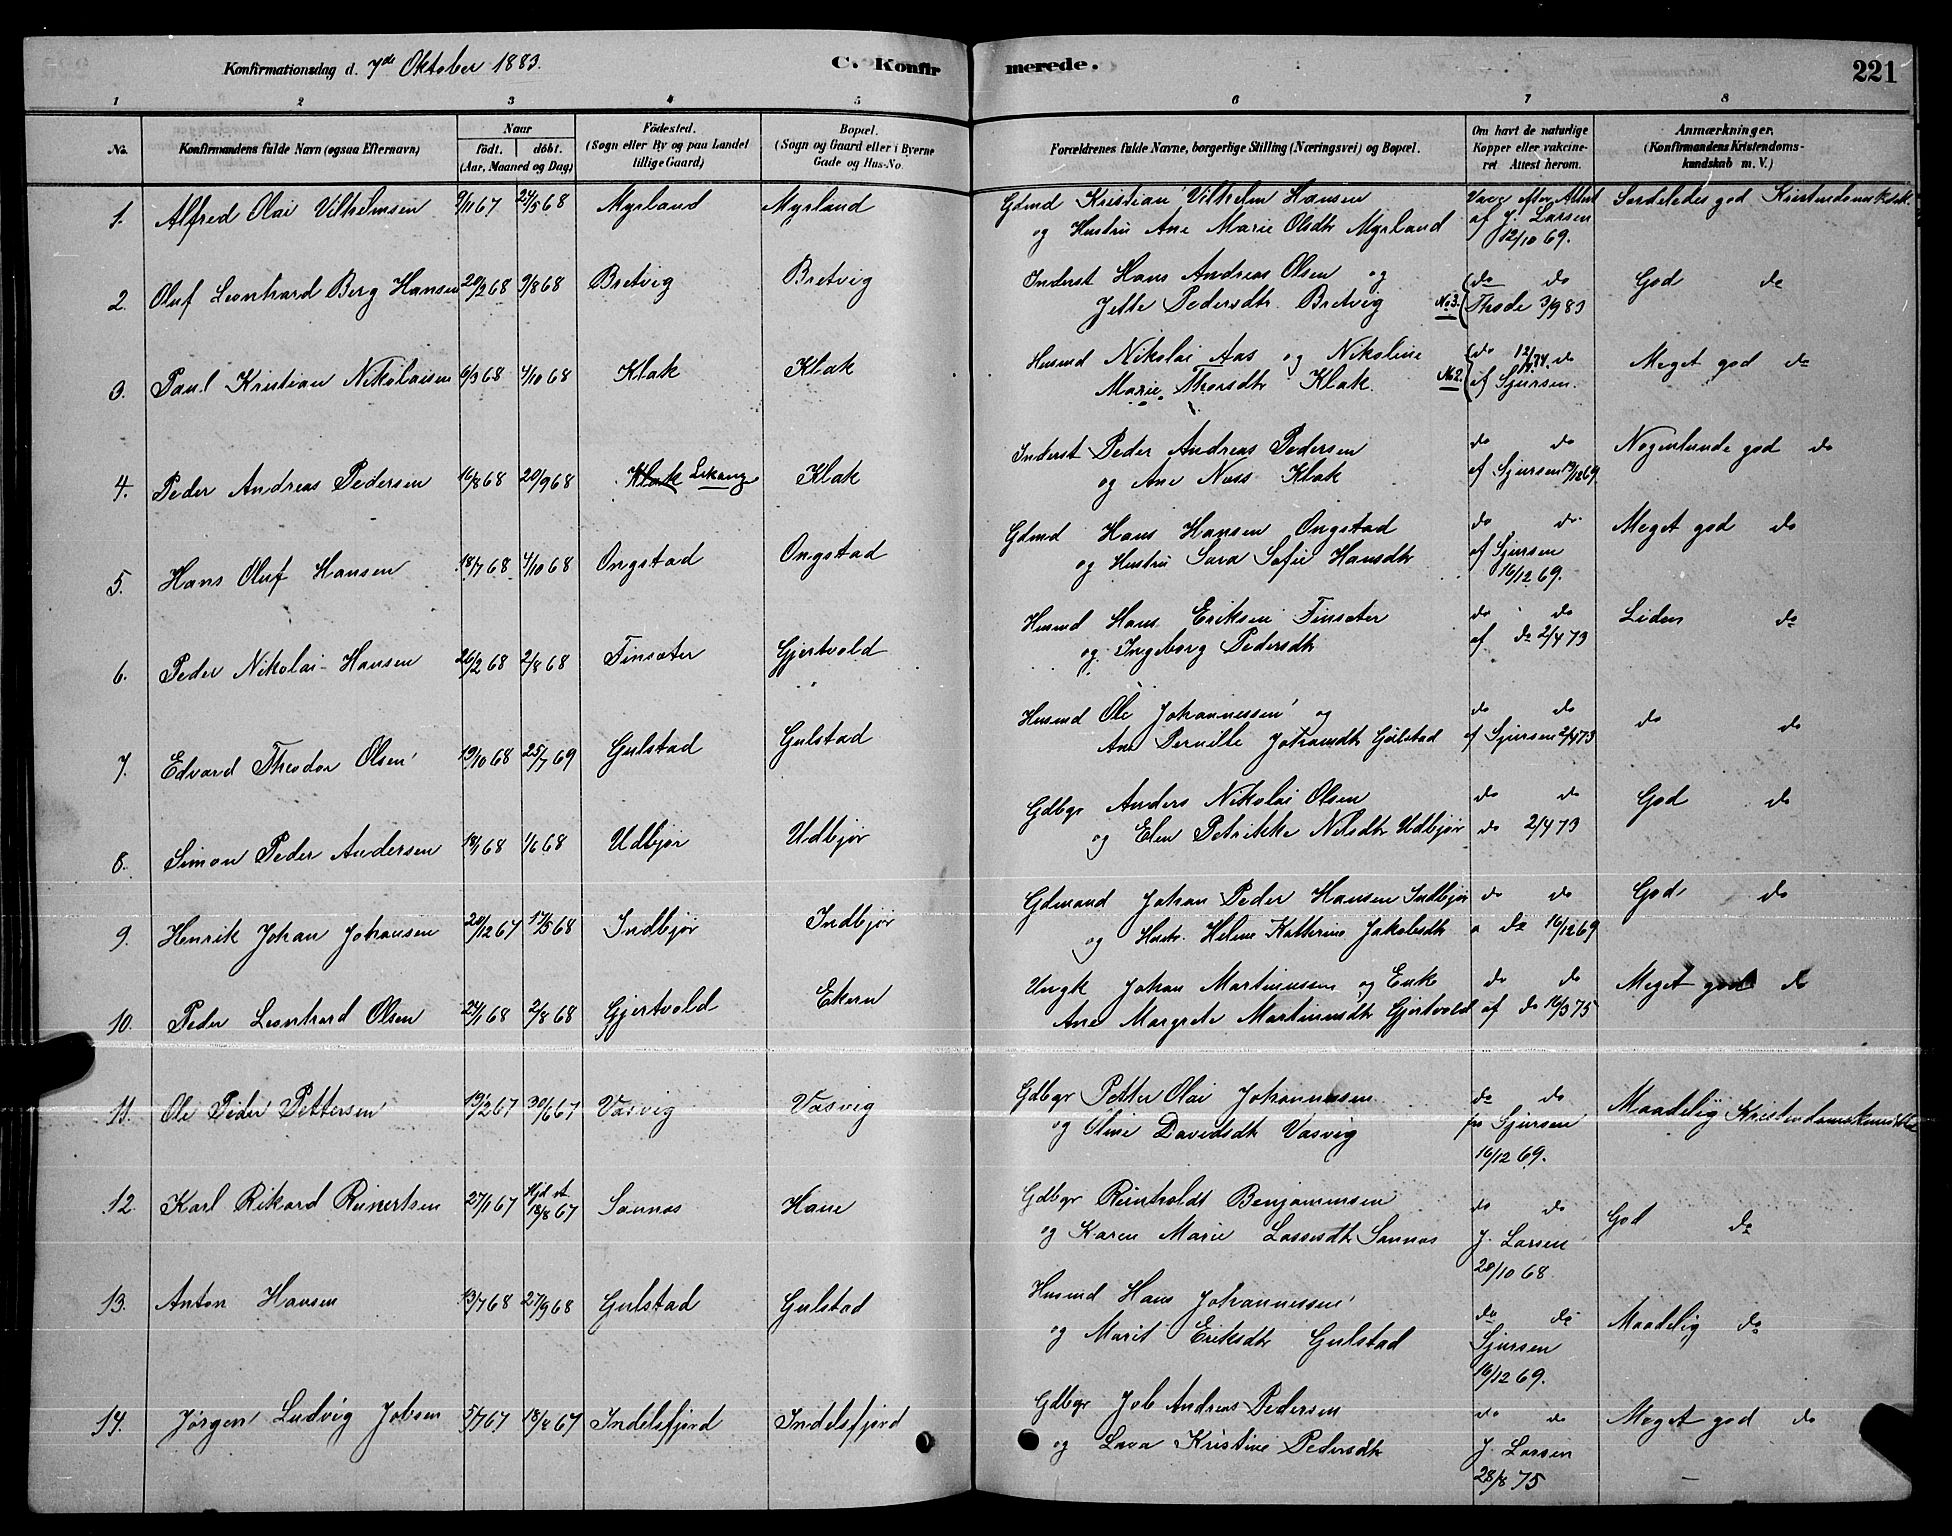 Konfirmationsdag d. 7de Oktober 1883.
C. Konfirmerede.
221
1 2 3 4 5 6 7 8
No.
Konfirmandens fulde Navn (ogsaa Efternavn)
Naar
født. døbt.
(Aar, Maaned og Dag)
Fødested.
(Sogn eller By og paa Landet
tillige Gaard)
Bopæl.
(Sogn og Gaard eller i Byerne
Gade og Hus-No.
Forældrenes fulde Navne, borgerlige Stilling (Næringsvei) og Bopæl.
Om havt de naturlige
Kopper eller vakcine-
ret Attest herom.
Anmærkninger,
(Konfirmandens Kristendoms-
kundskab m. V.)
1. Alfred Olai Vilhelmsen 9/11 67 24/5 68 Myrland Myrland
Gdmd Kristian Vilhelm Hansen
og Hustru Ane Marie Olsdtr Myrland
Vacc efter Attest
af J. Larsen
12/10 69.
Serdeledes god
2. Oluf Leonhard Berg Hansen 20/2 68 9/8 68 Bretvig Bretvig
Inderst Hans Andreas Olsen og
Jette Pedersdtr. Bretvig No 3.
do do
Thode 3/9 83
God do
3. Paul Kristian Nikolaisen 6/3 68 4/10 68 Klak Klak
Husmd Nikolai Aas og Nikoline
Marie Thorsdtr Klak No 2.
do do
af Sjursen.
Meget god do
4. Peder Andreas Pedersen 16/8 68 20/9 68 Klak Lekang Klak
Inderst Peder Andreas Pedersen
og Ane Næss Klak
do do
af Sjursen 12/12 69
Nogenlunde god do
5. Hans Oluf Hansen 18/7 68 4/10 68 Ongstad Ongstad
Gdmd Hans Hansen Ongstad
og Hustru Sara Sofie Hansdtr
do do
af Sjursen
16/12 69.
Meget god do
6. Peder Nikolai Hansen 26/2 68 2/8 68 Finsæter Gjertvold
Husmd Hans Eriksen Finsæter
og Ingeborg Pedersdtr
do do
af do 2/4 73
Liden do
7. Edvard Theodor Olsen 19/10 68 25/7 69 Gulstad Gulstad
Husmd Ole Johannessen og
Ane Pernille Johansdtr Gulstad
do do
af Sjursen 2/4 73
do do
8. Simon Peder Andersen 18/1 68 1/6 68 Udbjør Udbjør
Gdbgr Anders Nikolai Olsen
og Elen Petrikke Nilsdtr Udbjør
do do
do 2/4 73
God do
9. Henrik Johan Johansen 20/12 67 17/5 68 Indbjør Indbjør
Gdmand Johan Peder Hansen Indbjør
og Hustr. Helene Katterine Jakobsdtr
do do
do 16/12 69
God do
10. Peder Leonhard Olsen 24/1 68 2/8 68 Gjertvold Ekern
Ungk Johan Martinussen og Enke
Ane Margrete Martinusdtr Gjertvold
do do
af do 16/3 75
Meget god do
11. Ole Peder Pettersen 19/2 67 30/6 67 Vasvig Vasvig
Gdbgr Petter Olai Johannessen
og Oline Davidsdtr Vasvig
do do
fra Sjursen
16/12 69.
Maadelig Kristendomskundskab
12. Karl Rikard Reinertsen 27/1 67 Hjd dt 18/8 67 Sannes Hane
Gdbgr Reinholdt Benjaminsen
og Karen Marie Lassesdtr Sannes
do do
J. Larsen
28/10 68.
God do
13. Anton Hansen 13/7 68 27/9 68 Gulstad Gulstad
Husmd Hans Johannessen
og Marit Eriksdtr Gulstad
do do
Sjursen
16/12 69.
Maadelig do
14. Jørgen Ludvig Jobsen 5/7 67 18/8 67 Indelsfjord Indelsfjord
Gdbgr Job Andreas Pedersen
og Lava Kristine Pedersdtr
do do
J. Larsen
28/8 75
Meget god do